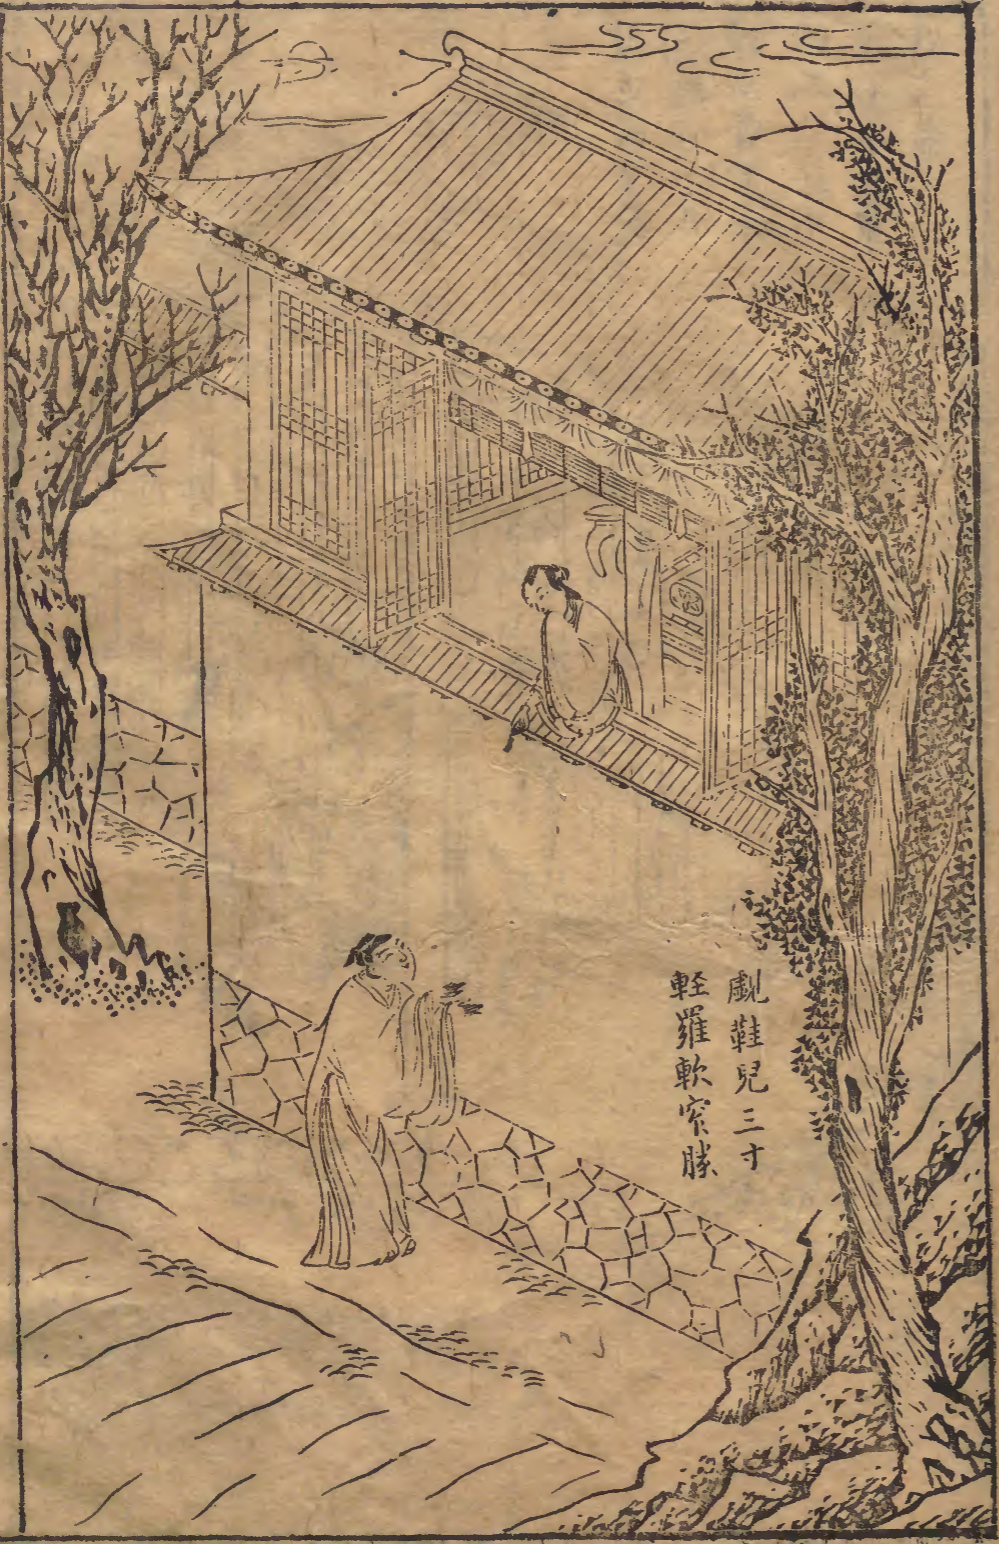 覷鞋兒三寸
輕羅軟窄勝